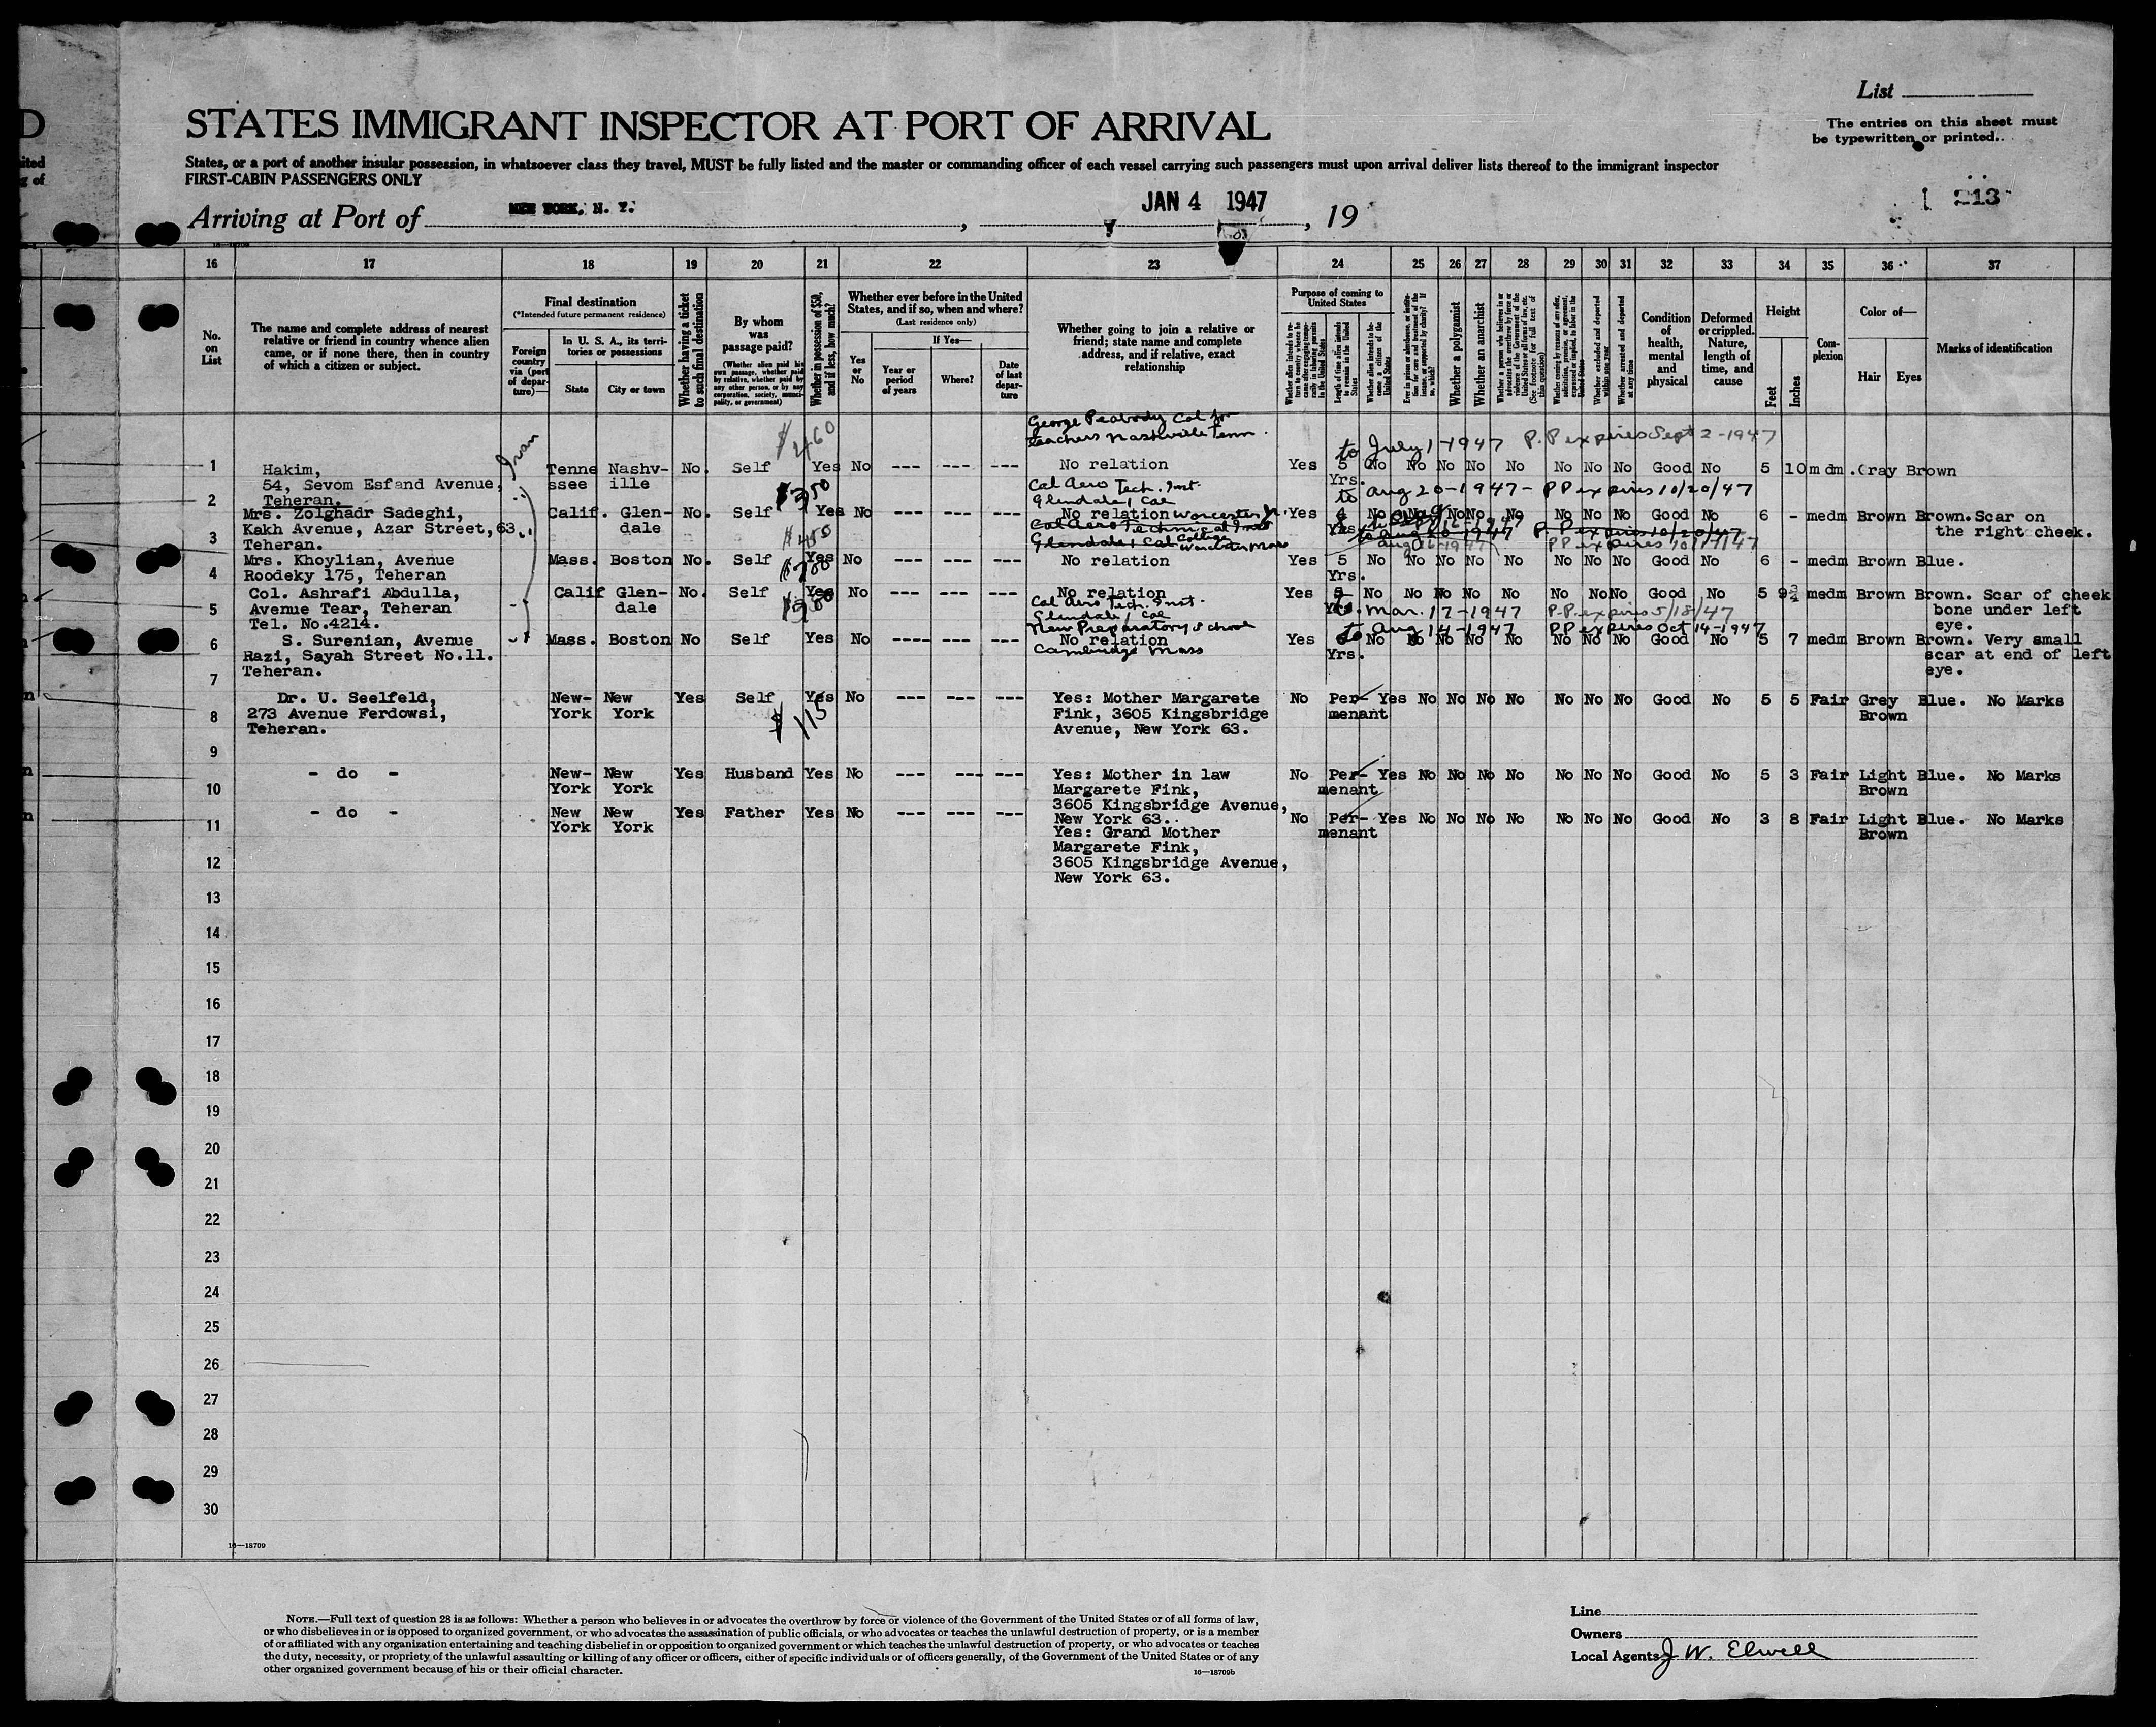 List
The entries on this sheet must
be typewritten or printed.
STATES IMMIGRANT INSPECTOR AT PORT OF ARRIVAL
States, or a port of another insular possession, in whatsoever class they travel, MUST be fully listed and the master or commanding officer of each vessel carrying such passengers must upon arrival deliver lists thereof to the immigrant inspector
FIRST-CABIN PASSENGERS ONLY
213
Arriving at Port of NEW YORK, N. Y. , JAN 4 1947 , 19
16 17 18 19 20 21 22 23 24 25 26 27 28 29 30 31 32 33 34 35 36 37
No. on List
The name and complete address of nearest
relative or friend in country whence alien
came, or if none there, then in country
of which a citizen or subject.
Final destination
(*Intended future permanent residence)
Foreign country via (port of departure)—
In U. S. A., its territories or possessions
State
City or town
Whether having a ticket to such final destination
By whom was passage paid?
(Whether alien paid his own passage, whether paid by relative, whether paid by any other person, or by any corporation, society, municipality, or government)
Whether in possession of $50, and if less, how much?
Whether ever before in the United States, and if so, when and where?
(Last residence only)
Yes or No
If Yes—
Year or period of years
Where?
Date of last departure
Whether going to join a relative or
friend; state name and complete
address, and if relative, exact
relationship
Purpose of coming to United States
Length of time alien intends to remain in the United States
Whether alien intends to become a citizen of the United States
Whether a polygamist
Whether an anarchist
Whether arrested and deported at any time
Condition of health, mental and physical
Deformed or crippled. Nature, length of time, and cause
Height
Feet
Inches
Complexion
Color of—
Hair
Eyes
Marks of identification
Iran
George Peabody Col for
teachers Nashville Tenn.
$460
to July 1-1947 P.P expires Sept 2-1947
1 Hakim, Tenne Nashv- No. Self Yes No --- --- --- No relation Yes 5 No No No No No No No No Good No 5 10 m dm. Gray Brown
54, Sevom Esfand Avenue, ssee ille Yrs.
Teheran.
Cal Aero Tech. Inst.
Glendale, Cal
$350
to Aug 20-1947- PP expires 10/20/47
2 Mrs. Zolghadr Sadeghi, Calif. Glen- No. Self Yes No --- --- --- No relation Yes 4 No No No No No No No No Good No 6 - medm Brown Brown. Scar on
Kakh Avenue, Azar Street, 63. dale Yrs. the right cheek.
Teheran.
Cal Aero Technical Inst
Glendale, Cal
Worcester
College
Worcester Mass
$450
PP expires 10/20/47
3 Mrs. Khoylian, Avenue Mass. Boston No. Self Yes No --- --- --- No relation Yes 5 No No No No No No No No Good No 6 - medm Brown Blue.
Roodeky 175, Teheran Yrs.
4 Col. Ashrafi Abdulla, Calif Glen- No. Self Yes No --- --- --- No relation Yes 5 No No No No No No No No Good No 5 9¾ medm Brown Brown. Scar of cheek
Avenue Tear, Teheran dale Yrs. bone under left
Tel. No.4214. eye.
Cal Aero Tech. Inst.
Glendale, Cal
Mar. 17-1947 P.P. expires 5/18/47
New Preparatory School
Cambridge Mass
to Aug 14-1947 PP expires Oct 14-1947
5 S. Surenian, Avenue Mass. Boston No Self Yes No ---- --- --- No relation Yes No No No No No No No No Good No 5 7 medm Brown Brown. Very small
Razi, Sayah Street No.11. Yrs. scar at end of left
Teheran. eye.
6
7
Dr. U. Seelfeld, New- New Yes Self Yes No --- --- --- Yes: Mother Margarete No Per- Yes No No No No No No No Good No 5 5 Fair Grey Blue. No Marks
8 273 Avenue Ferdowsi, York York $115 Fink, 3605 Kingsbridge menant Brown
Teheran. Avenue, New York 63.
9
- do - New- New Yes Husband Yes No --- --- --- Yes: Mother in law No Per- Yes No No No No No No No Good No 5 3 Fair Light Blue. No Marks
10 York York Margarete Fink, menant Brown
3605 Kingsbridge Avenue,
New York 63.
- do - New New Yes Father Yes No --- --- --- No Per- Yes No No No No No No No Good No 3 8 Fair Light Blue. No Marks
11 York York Yes: Grand Mother menant Brown
Margarete Fink,
12 3605 Kingsbridge Avenue,
New York 63.
13
14
15
16
17
18
19
20
21
22
23
24
25
26
27
28
29
30
16—18709
NOTE.—Full text of question 28 is as follows: Whether a person who believes in or advocates the overthrow by force or violence of the Government of the United States or of all forms of law,
or who disbelieves in or is opposed to organized government, or who advocates the assassination of public officials, or who advocates or teaches the unlawful destruction of property, or is a member
of or affiliated with any organization entertaining and teaching disbelief in or opposition to organized government or which teaches the unlawful destruction of property, or who advocates or teaches
the duty, necessity, or propriety of the unlawful assaulting or killing of any officer or officers, either of specific individuals or of officers generally, of the Government of the United States or of any
other organized government because of his or their official character.
16—18709b
Line
Owners
Local Agents J. W. Elwell